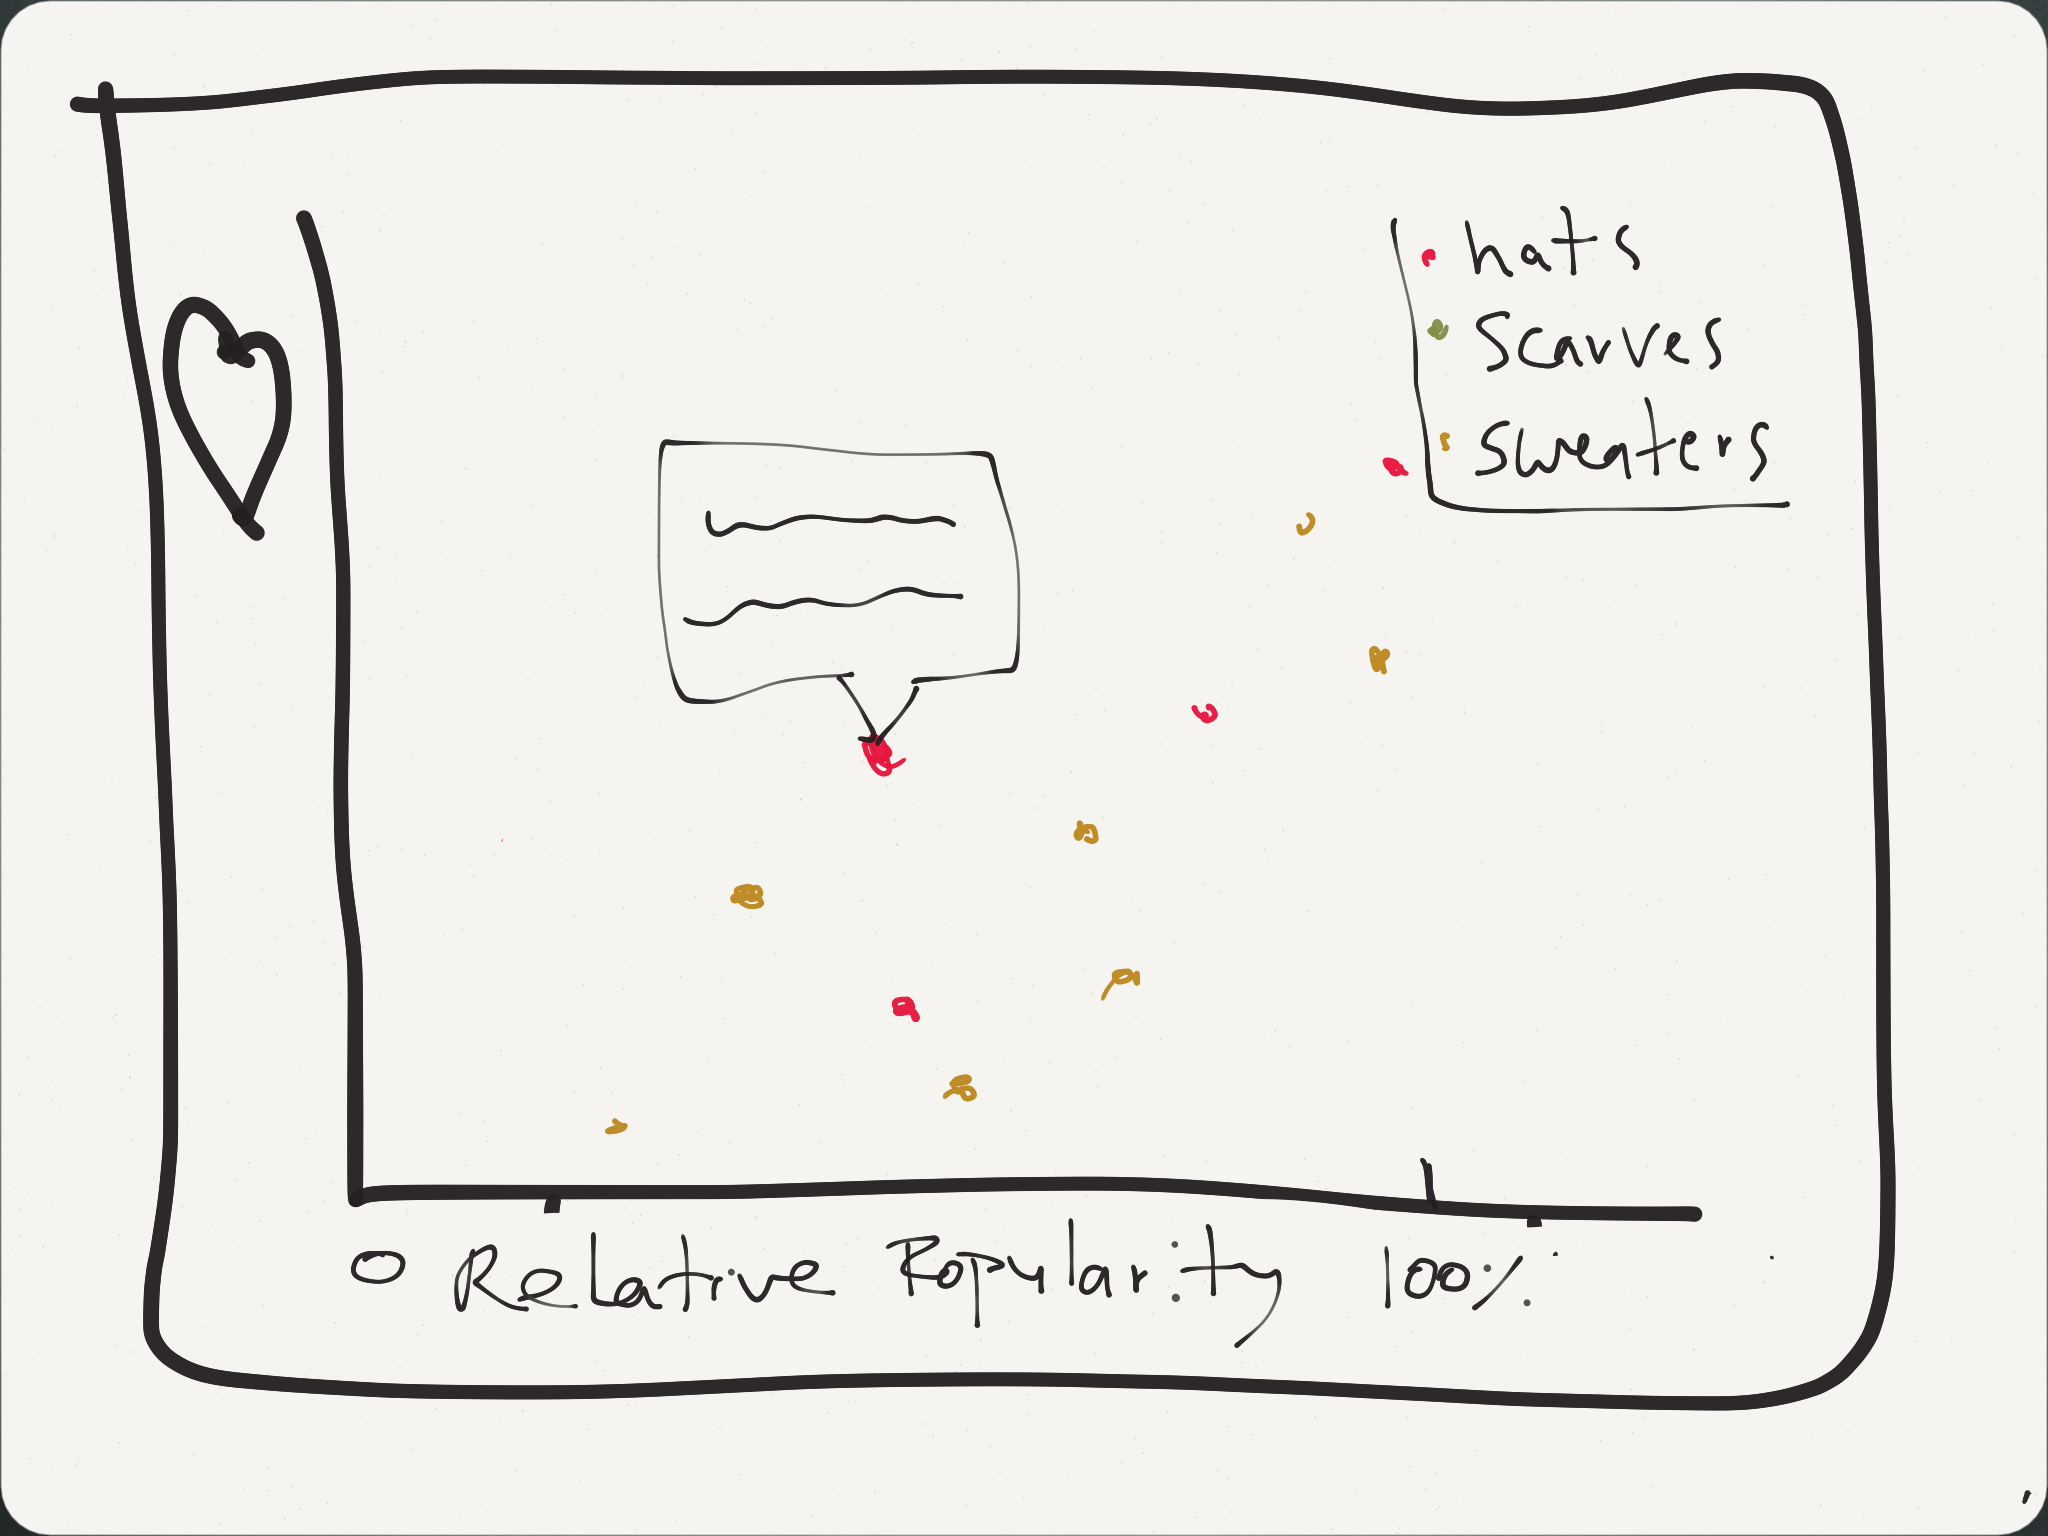 hats
Scarves
Sweaters
0 Relative Popularity 100%